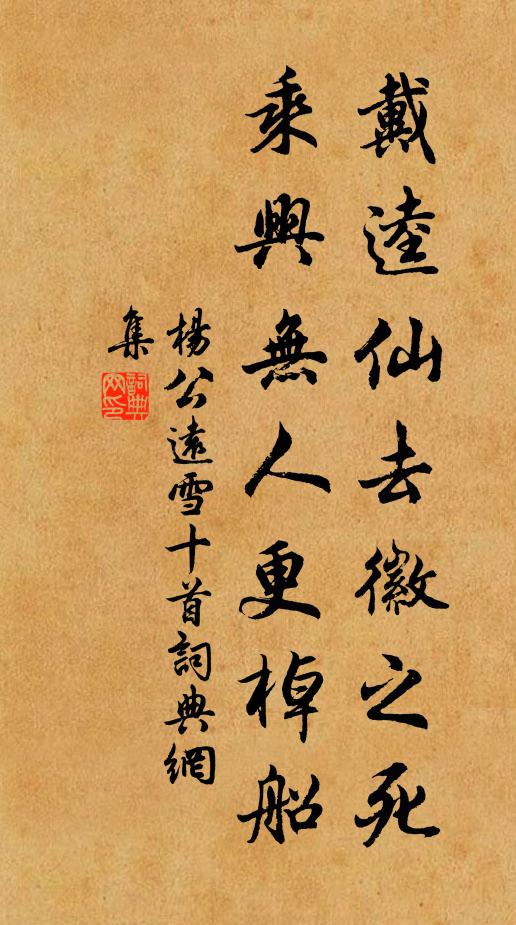 戴逵仙去徽之死
乘興無人更棹船
楊公遠雪十首詞典網
集
詞典
网印